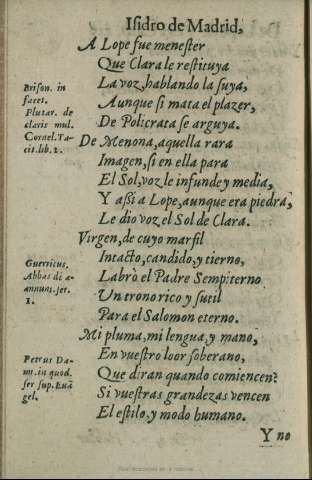 Isidro de Madrid,
A Lope fue menester
Que Clara le restituya
La voz, hablando la suya,
Aunque si mata el plazer,
De Policrata se arguya.
De Menona, aquella rara
Imagen, si en ella para
El Sol, voz le infunde y media,
Y aßi a Lope, aunque era piedra,
Le dio voz el Sol de Clara.
Virgen, de cuyo marfil
Intacto, candido, y tierno,
Labrò el Padre Sempiterno
Un trono rico y sutil
Para el Salomon eterno.
Mi pluma, mi lengua, y mano,
En vuestro loor soberano,
Que diran quando comiencen?
Si vuestras grandezas vencen
El estilo, y modo humano.
Y no
Brison. in
facet.
Plutar. de
claris mul.
Cornel. Ta-
cit. lib. 2.
Guerricus.
Abbas di a-
annunt. ser.
1.
Petrus Da-
mi. in quod.
ser sup. Euã
gel.